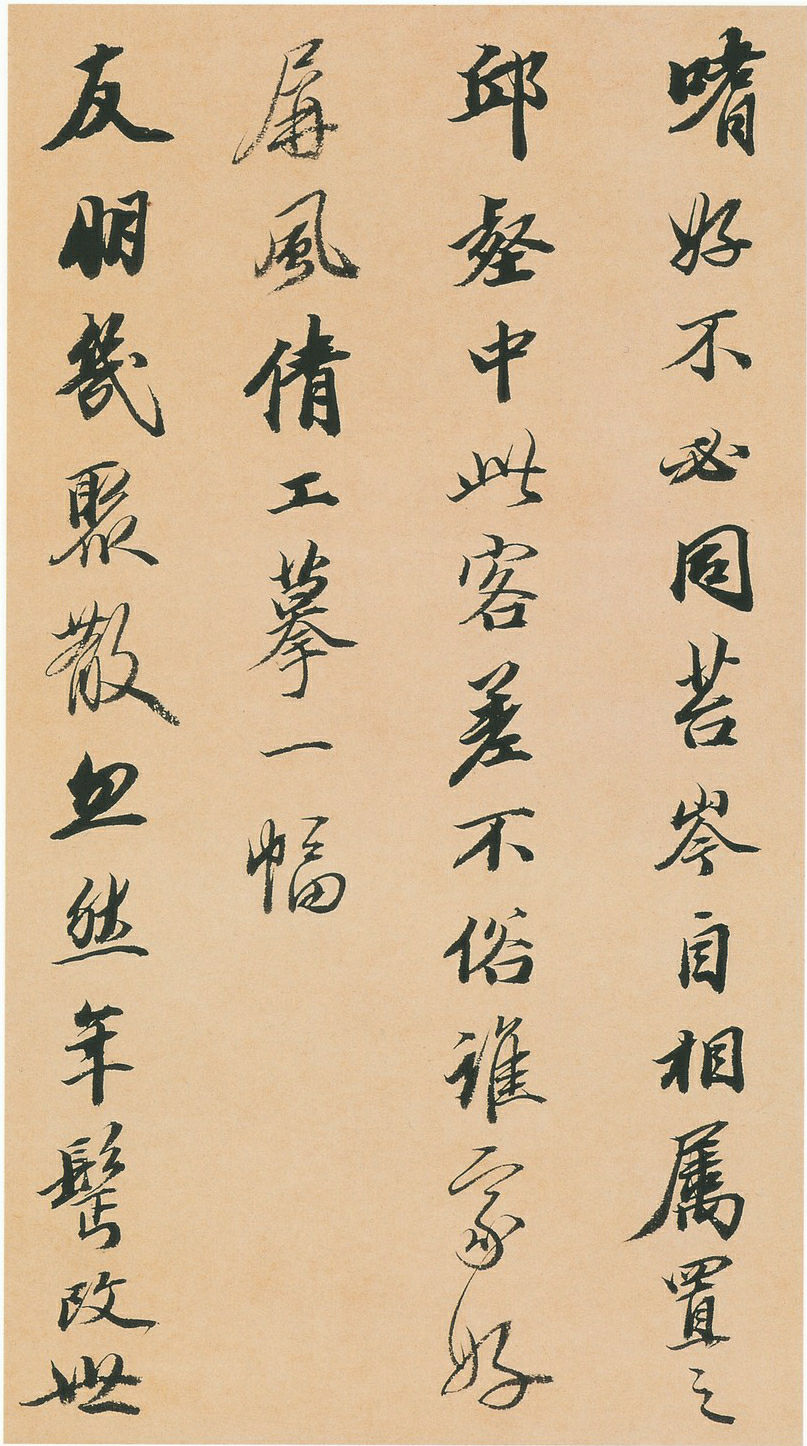 嗜好不必同苔岑自相属置之
邱壑中此客差不俗谁家好
屏風倩工摹一幅
友朋幾聚散忽然年髩改無